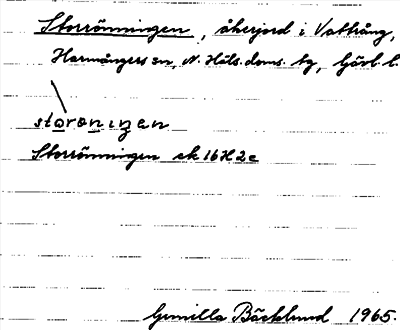 Storrönningen, åkerjord i Vattrång,
Harmångers sn, N. Häls. doms. tg, Gävl. l.
storöniŋen
Storrönningen ek 16H2c
Gunilla Bäcklund 1965.